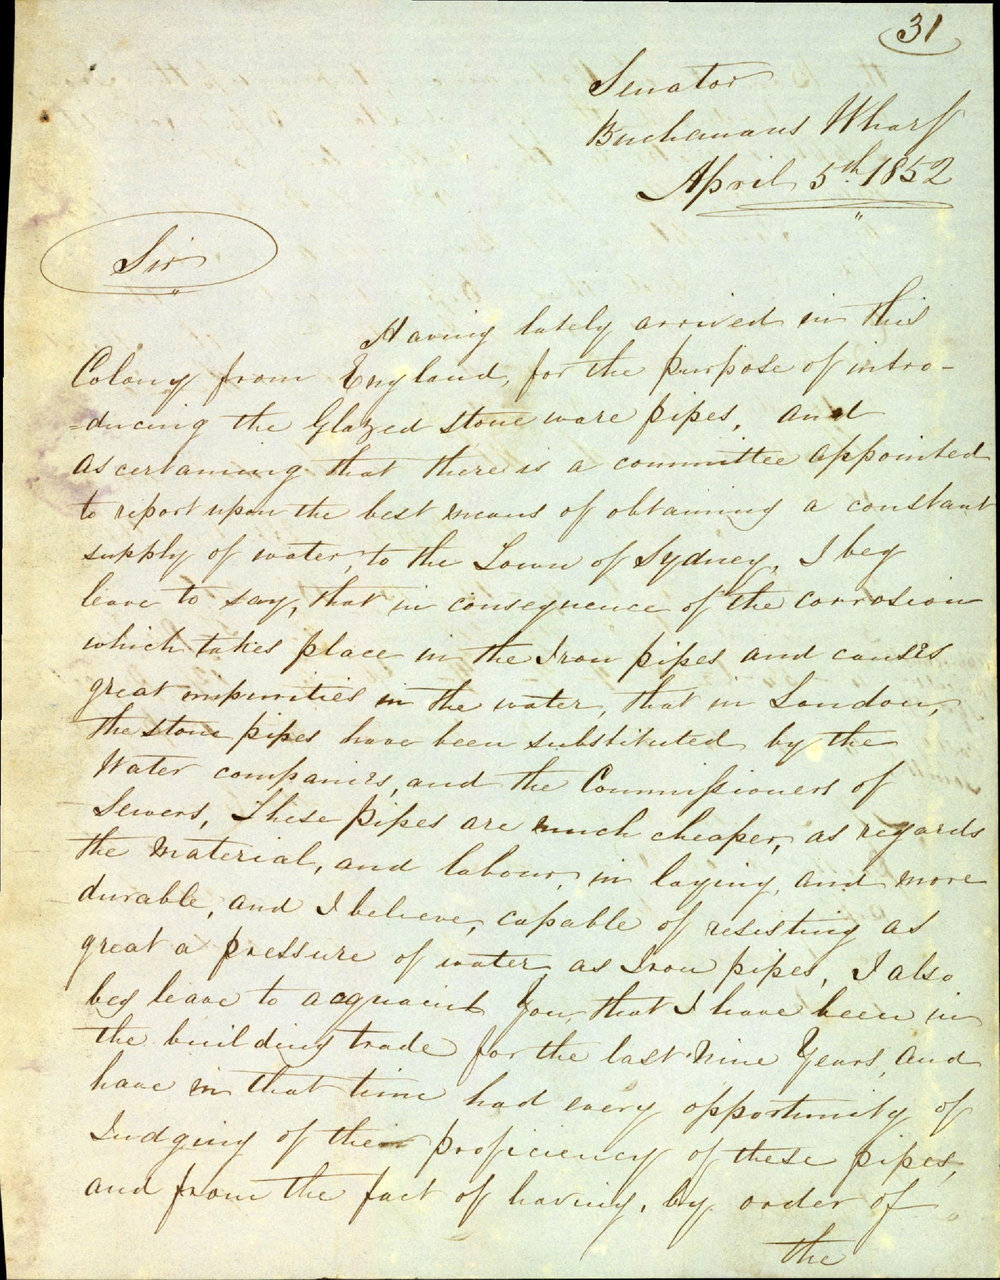 31
Senator
Buchanans Wharf
April 5th 1852
Sir
Having lately arrived in this
Colony from England, for the purpose of intro-
=ducing the Glazed Stone ware pipes, and
ascertaining that there is a committee appointed
to report upon the best means of obtaining a constant
supply of water, to the Town of Sydney, I beg
leave to say, that in consequence of the corrosion
which takes place in the Iron pipes and causes
great impurities in the water, that in London,
the stone pipes have been substituted by the
Water companies, and the Commissioners of
Sewers, These pipes are much cheaper, as regards
the material, and labour, in laying, and more
durable, and I believe, capable of resisting as
great a pressure of water, as Iron pipes, I also
beg leave to acquaint You, that I have been in
the building trade for the last Nine Years, and
have in that time had every opportunity of
Judging of the proficiency of these pipes,
and from the fact of having, by order of
the